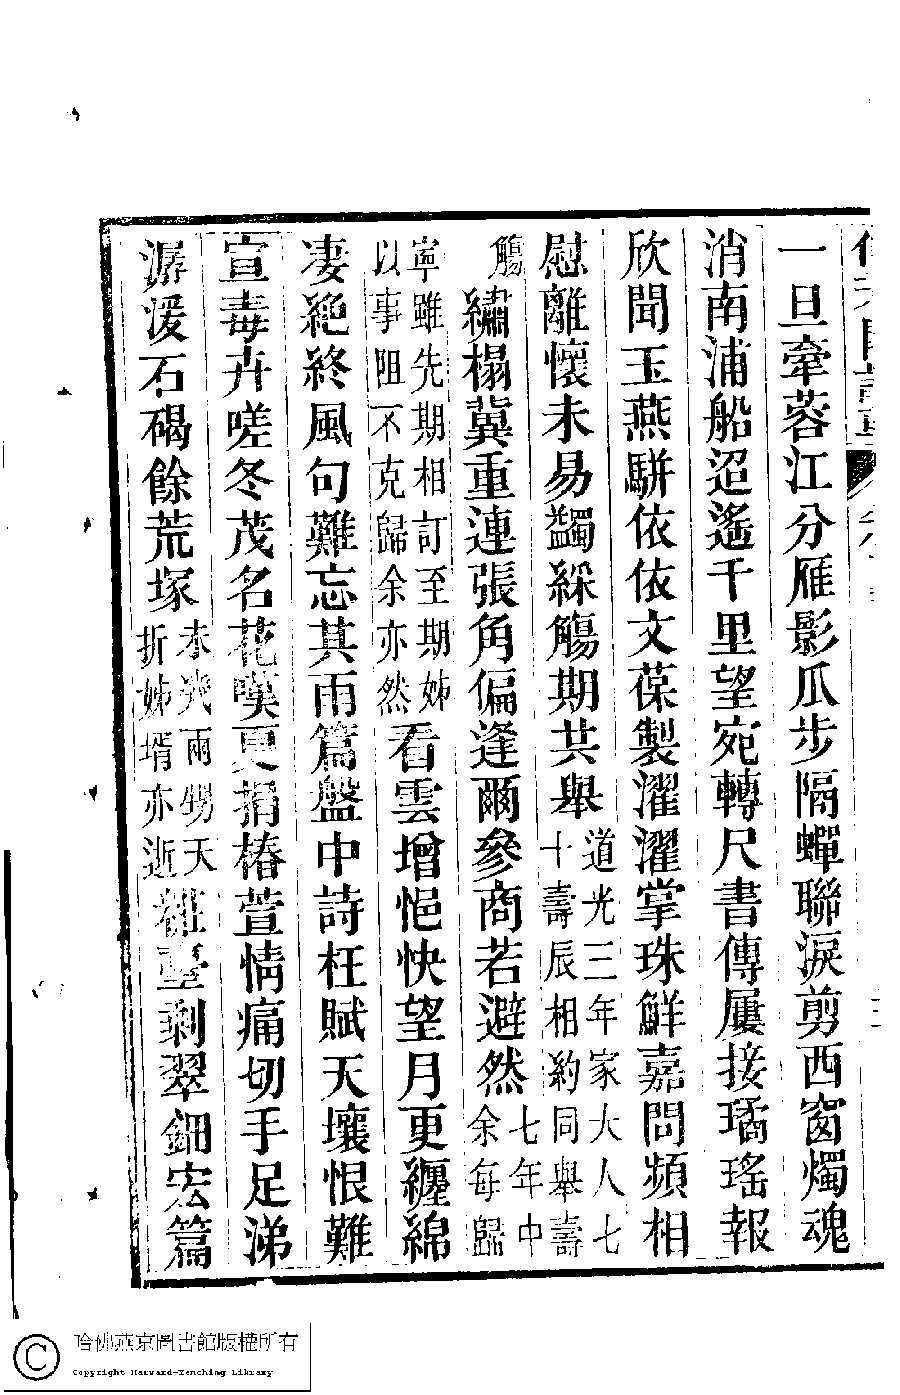 一旦牽蓉江分雁影瓜步隔蟬聯淚剪西窗燭魂
消南浦船迢遙千里望宛轉尺書傳屢接璚瑤報
欣聞玉燕駢依依文葆製濯濯掌珠鮮嘉問頻相
慰離懷未易蠲綵觴期共舉道光三年家大人七十壽辰相約同舉壽
觴繡榻冀重連張角偏逢爾參商若避然七年中余每歸
寧雖先期相訂至期姊以事阻不克歸余亦然看雲增悒怏望月更纏綿
凄絶終風句難忘其雨篇盤中詩枉賦天壤恨難
宣毒卉嗟冬茂名花嘆更捐椿萱情痛切手足涕
潺湲石碣餘荒塚未幾兩甥夭折姊壻亦逝粧臺剩翠鈿宏篇
哈佛燕京圖書館版權所有
Copyright Harvard-Yenching Library